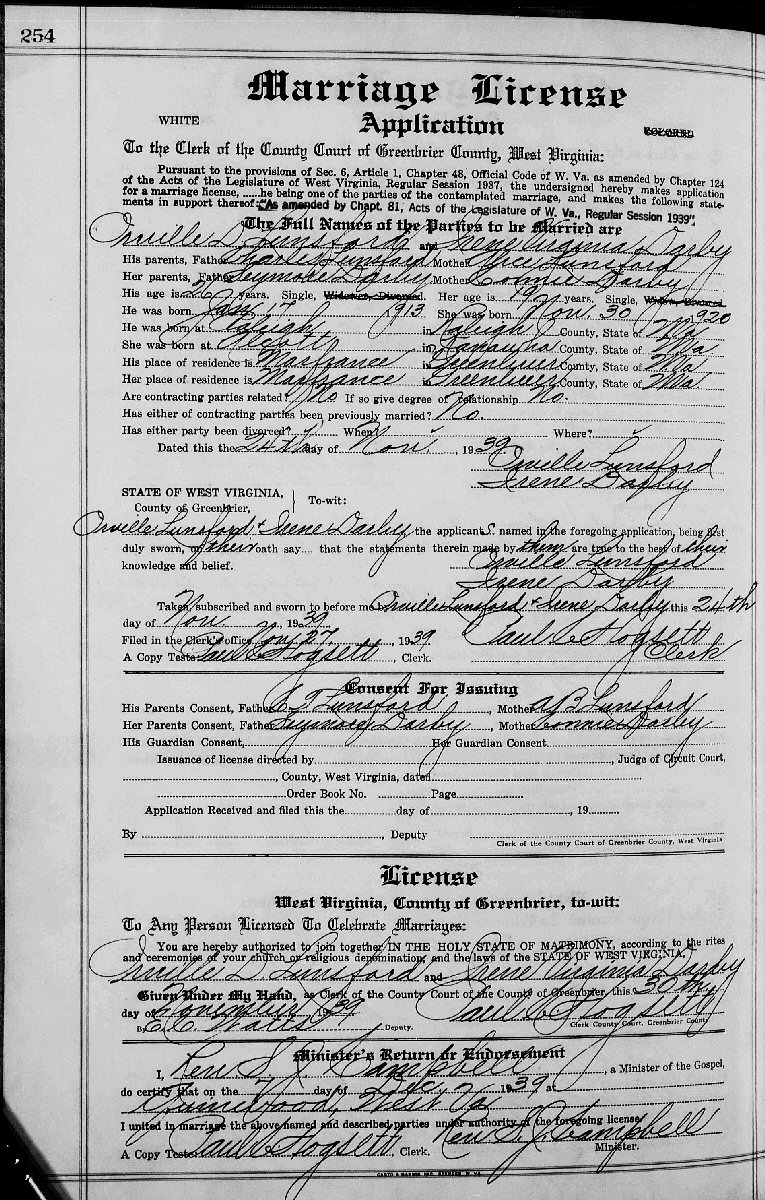 254
Marriage License
WHITE Application COLORED
To the Clerk of the County Court of Greenbrier County, West Virginia:
Pursuant to the provisions of Sec. 6, Article 1, Chapter 48, Official Code of W. Va. as amended by Chapter 124
of the Acts of the Legislature of West Virginia, Regular Session 1937, the undersigned hereby makes application
for a marriage license, ......he being one of the parties of the contemplated marriage, and makes the following state-
ments in support thereof: "As amended by Chapt. 81, Acts of the Legislature of W. Va., Regular Session 1939".
The Full Names of the Parties to be Married are
Orville D. Lunsford and Irene Virginia Darby
His parents, Father Charles Lunsford Mother Alice Lunsford
Her parents, Father Seymore Darby Mother Connie Darby
His age is 26 years. Single, Widower, Divorced. Her age is 19 years. Single, Widow, Divorced
He was born Jan. 17 1913 She was born Nov. 30 1920
He was born at Raleigh in Raleigh County, State of W Va
She was born at in Kanawha County, State of W Va
His place of residence is Marfrance in Greenbrier County, State of W Va
Her place of residence is Marfrance in Greenbrier County, State of W Va
Are contracting parties related? No If so give degree of relationship No.
Has either of contracting parties been previously married? No.
Has either party been divorced? When? Where?
Dated this the 24th day of Nov. , 1939.
Orville Lunsford
Irene Darby
STATE OF WEST VIRGINIA,
County of Greenbrier, To-wit:
Orville Lunsford & Irene Darby the applicants. named in the foregoing application, being first
duly sworn, on their oath say.... that the statements therein made by them are true to the best of their
knowledge and belief. Orville Lunsford
Irene Darby
Taken, subscribed and sworn to before me Orville Lunsford & Irene Darby this 24th
day of Nov , 1939.
Filed in the Clerk's office, Nov 27 1939 Paul C Hogsett
A Copy Teste: Paul C Hogsett , Clerk. Clerk
Consent For Issuing
His Parents Consent, Father C T Lunsford , Mother A B Lunsford
Her Parents Consent, Father Seymore Darby , Mother Connie Darby
His Guardian Consent, Her Guardian Consent
Issuance of license directed by , Judge of Circuit Court,
, County, West Virginia, dated
Order Book No. Page
Application Received and filed this the day of , 19
By , Deputy
Clerk of the County Court of Greenbrier County, West Virginia
License
West Virginia, County of Greenbrier, to-wit:
To Any Person Licensed To Celebrate Marriages:
You are hereby authorized to join together IN THE HOLY STATE OF MATRIMONY, according to the rites
and ceremonies of your church or religious denomination, and the laws of the STATE OF WEST VIRGINIA,
Orville D Lunsford and Irene Virginia Darby
Given Under My Hand, as Clerk of the County Court of the County of Greenbrier, this 30th
day of November 1939 Paul C Hogsett
By C C Watts , Deputy. Clerk County Court, Greenbrier County
Minister's Return or Endorsement
I, Rev. S. J. Campbell , a Minister of the Gospel,
do certify that on the day of Dec 1939 at
West Va
I united in marriage the above named and described parties under authority of the foregoing license.
Rev S. J. Campbell
A Copy Teste: Paul C Hogsett , Clerk. Minister.